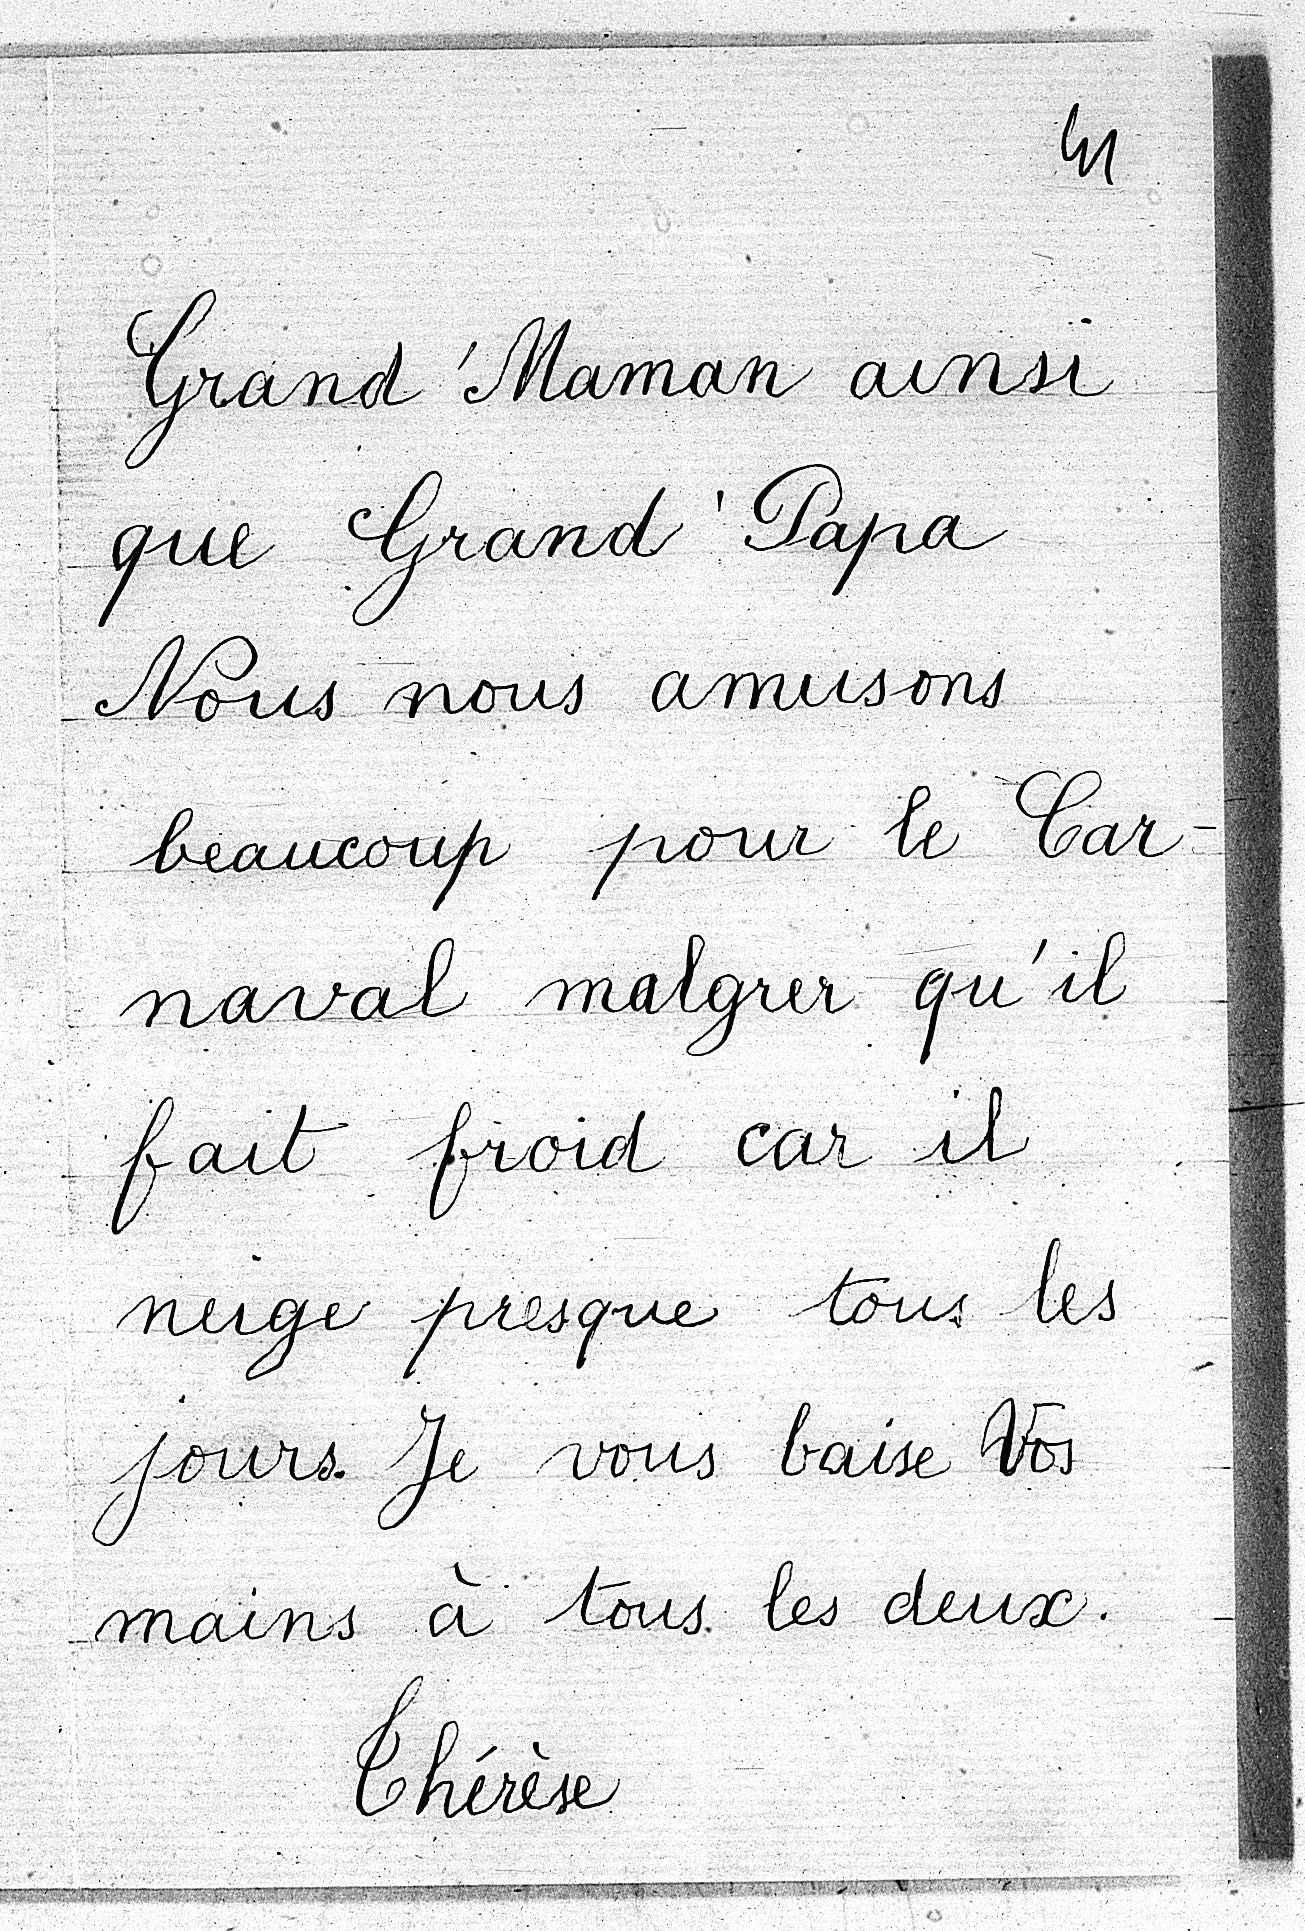 41
Grand'Maman ainsi
que Grand'Papa
Nous nous amusons
beaucoup pour le Car-
naval malgrer qu'il
fait froid car il
neige presque tous les
jours. Je vous baise Vos
mains à tous les deux.
Thérèse